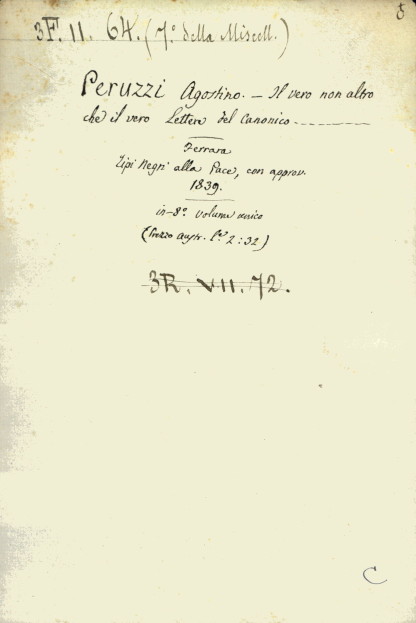 3F. 11. 64. (7.º della Miscell.)
Peruzzi Agostino. — Il vero non altro
che il vero Lettera del Canonico ----------
Ferrara
Tipi Negri alla Pace, con approv.
1839.
in-8.º volume unico
(Prezzo austr. L.e 2:32)
3R. VII. 72.
C